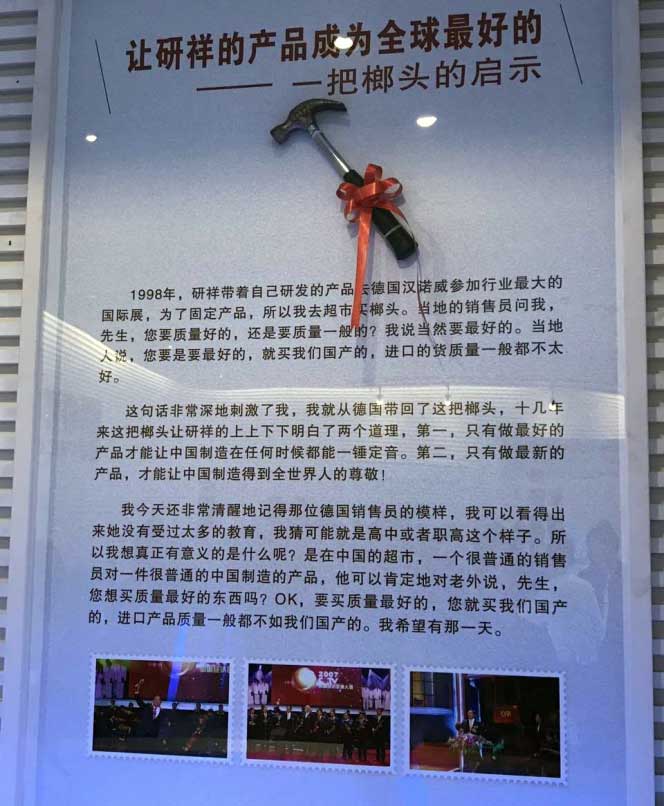 让研祥的产品成为全球最好的
—— 一把榔头的启示
1998年，研祥带着自己研发的产品去德国汉诺威参加行业最大的
国际展，为了固定产品，所以我去超市买榔头。当地的销售员问我，
先生，您要质量好的，还是要质量一般的？我说当然要最好的。当地
人说，您要是要最好的，就买我们国产的，进口的货质量一般都不太
好。
这句话非常深地刺激了我，我就从德国带回了这把榔头，十几年
来这把榔头让研祥的上上下下明白了两个道理，第一，只有做最好的
产品才能让中国制造在任何时候都能一锤定音。第二，只有做最新的
产品，才能让中国制造得到全世界人的尊敬！
我今天还非常清醒地记得那位德国销售员的模样，我可以看得出
来她没有受过太多的教育，我猜可能就是高中或者职高这个样子。所
以我想真正有意义的是什么呢？是在中国的超市，一个很普通的销售
员对一件很普通的中国制造的产品，他可以肯定地对老外说，先生，
您想买质量最好的东西吗？OK，要买质量最好的，您就买我们国产
的，进口产品质量一般都不如我们国产的。我希望有那一天。
2007